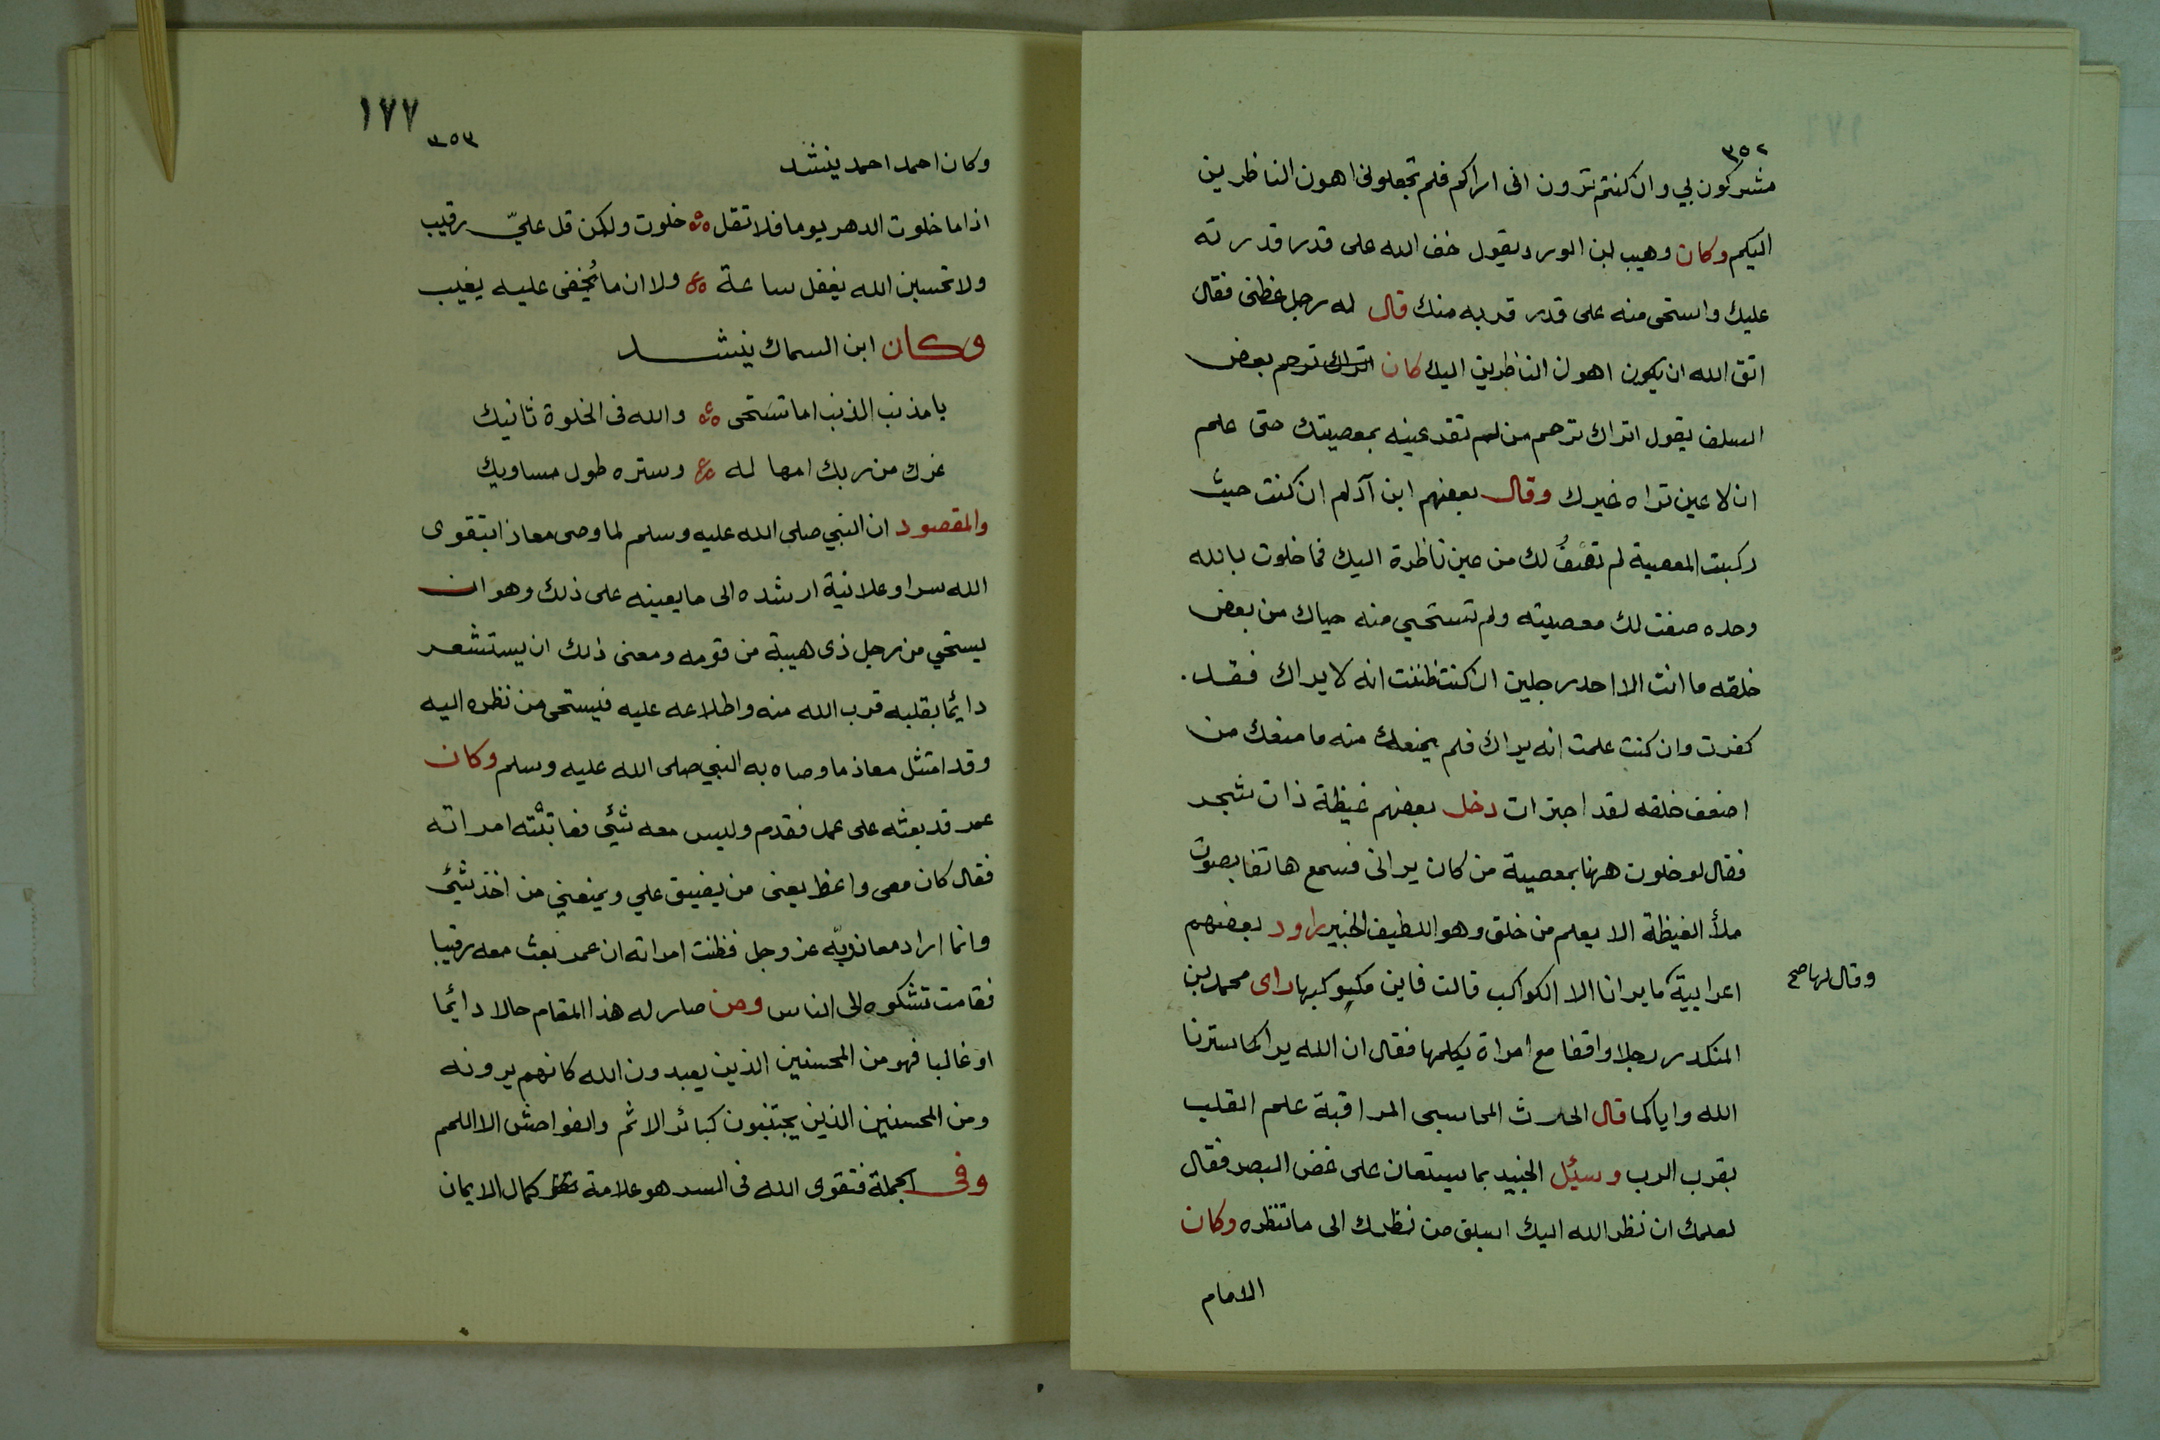 ٣٥٢
مشركون بي وان كنتم ترون انى اراكم فلم تجعلونى اهون الناظرين
اليكم وكان وهيب ابن الورد يقول خف الله على قدر قدرته
عليك واستحى منه على قدر قربه منك قال له رجل عظنى فقال
اتق الله ان يكون اهون الناظرين اليك كان اتراك ترحم بعض
السلف يقول اتراك ترحم من لم تقد عينه بمعصيتك حتى علم
ان لا عين تراه غيرك وقال بعضهم ابن آدم ان كنت حيث
ركبت المعصية لم تصف لك من عين ناظرة اليك فما خلوت بالله
وحده صفت لك معصيته ولم تستحيي منه حياك من بعض
خلقه ما انت الا احد رجلين ان كنت ظننت انه لا يراك فقد
كفرت وان كنت علمت انه يراك فلم يمنعك منه ما منعك من
اضعف خلقه لقد اجترات دخل بعضهم غيظة ذات شجر
فقال لو خلوت ههنا بمعصية من كان يرانى فسمع هاتفا بصوت
ملأ الغيظة الا يعلم من خلق وهو اللطيف الخبير راود بعضهم
وقال لها صح
اعرابية ما يرانا الا الكواكب قالت فاين مكوكبها راى محمد بن
المنكدر رجلا واقفا مع امراة يكلمها فقال ان الله يراكما سترنا
الله واياكما قال الحرث المحاسبى المراقبة علم القلب
بقرب الرب وسئل الجنيد بما يستعان على غض البصر فقال
لعلمك ان نظر الله اليك اسبق من نظرك الى ما تنظره وكان
الامام
١٧٧
٣٥٣
وكان احمد احمد ينشد
اذا ما خلوت الدهر يوما فلا تقل خلوت ولكن قل عليّ رقيب
ولا تحسبن الله يغفل ساعة ولا ان ما يُخفى عليه يغيب
وكان ابن السماك ينشد
يا مذنب الذنب اما تستحى والله فى الخلوة ثانيك
غرك من ربك امهاله وستره طول مساويك
والمقصود ان النبي صلى الله عليه وسلم لما وصى معاذا بتقوى
الله سرا وعلانية ارشده الى ما يعينه على ذلك وهو ان
يستحيي من رجل ذى هيبة من قومه ومعنى ذلك ان يستشعر
دائما بقلبه قرب الله منه واطلاعه عليه فيستحى من نظره اليه
وقد امتثل معاذ ما وصاه به النبي صلى الله عليه وسلم وكان
عمر قد بعثه على عمل فقدم وليس معه شئي فعاتبته امراته
فقال كان معى واعظ يعنى من يضيق علي ويمنعني من اخذ شئي
وانما اراد معاذ ربه عز وجل فظنت امراته ان عمر بعث معه رقيبا
فقامت تشكوه الى الناس ومن صار له هذا المقام حالا دائما
او غالبا فهو من المحسنين الذين يعبدون الله كانهم يرونه
ومن المحسنين الذين يجتنبون كبائر الاثم والفواحش الا اللمم
وفى الجملة فتقوى الله فى السر هو علامة كمال الايمان